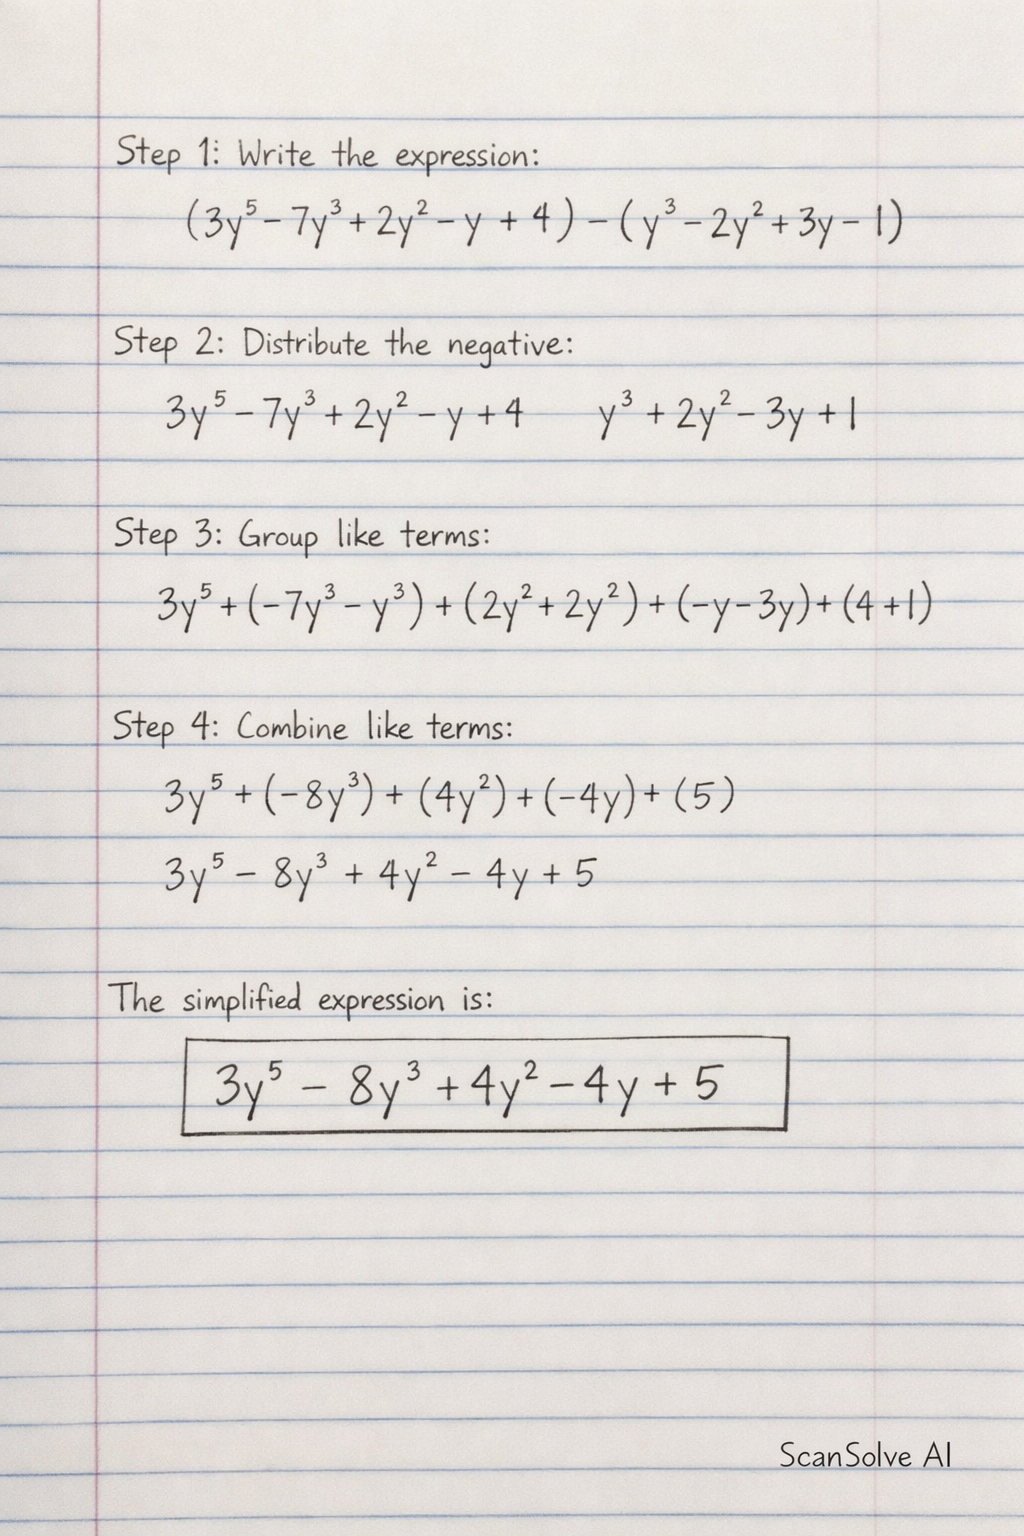 Step 1: Write the expression:
(3y⁵ − 7y³ + 2y² − y + 4) − (y³ − 2y² + 3y − 1)
Step 2: Distribute the negative:
3y⁵ − 7y³ + 2y² − y + 4 y³ + 2y² − 3y + 1
Step 3: Group like terms:
3y⁵ + (−7y³ − y³) + (2y² + 2y²) + (−y − 3y) + (4 + 1)
Step 4: Combine like terms:
3y⁵ + (−8y³) + (4y²) + (−4y) + (5)
3y⁵ − 8y³ + 4y² − 4y + 5
The simplified expression is:
3y⁵ − 8y³ + 4y² − 4y + 5
ScanSolve AI